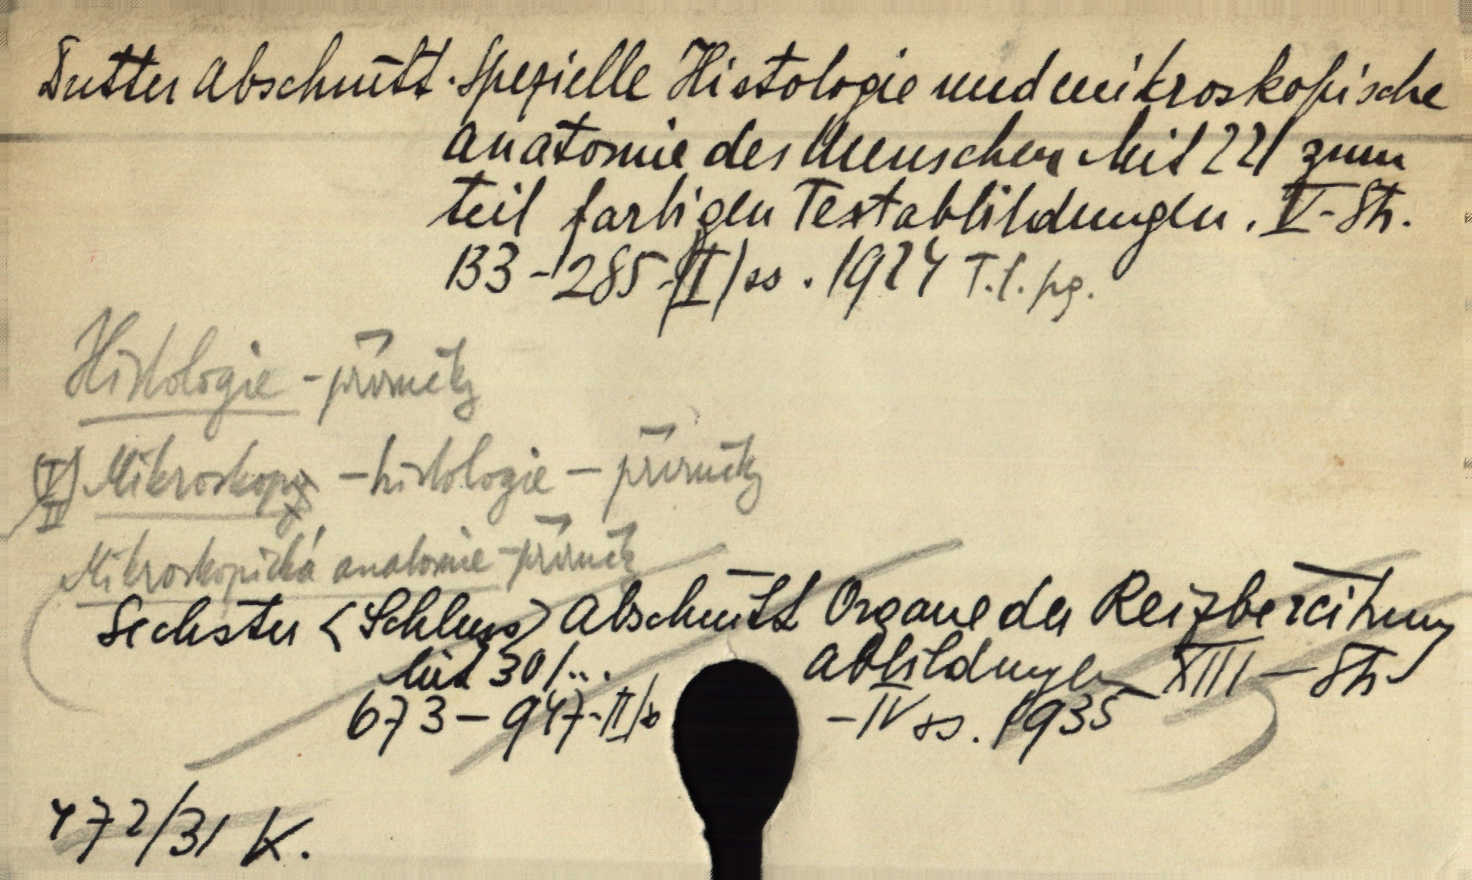 Dritter Abschnitt. Spezielle Histologie und mikroskopische
Anatomie des Menschen Mit 221 zum
teil farbigen Textabbildungen. V-Str.
133-285-(II) ss. 1924 T.l. pg.
Histologie - příručky
Mikroskopy - histologie - příručky
Mikroskopická anatomie - příručk
Sechster <Schluss> Abschnitt Organe der Reizbereitung
Mit 301... Abbildungen XIII - Str
673-947-II/ -IV ss. 1935
472/31 K.